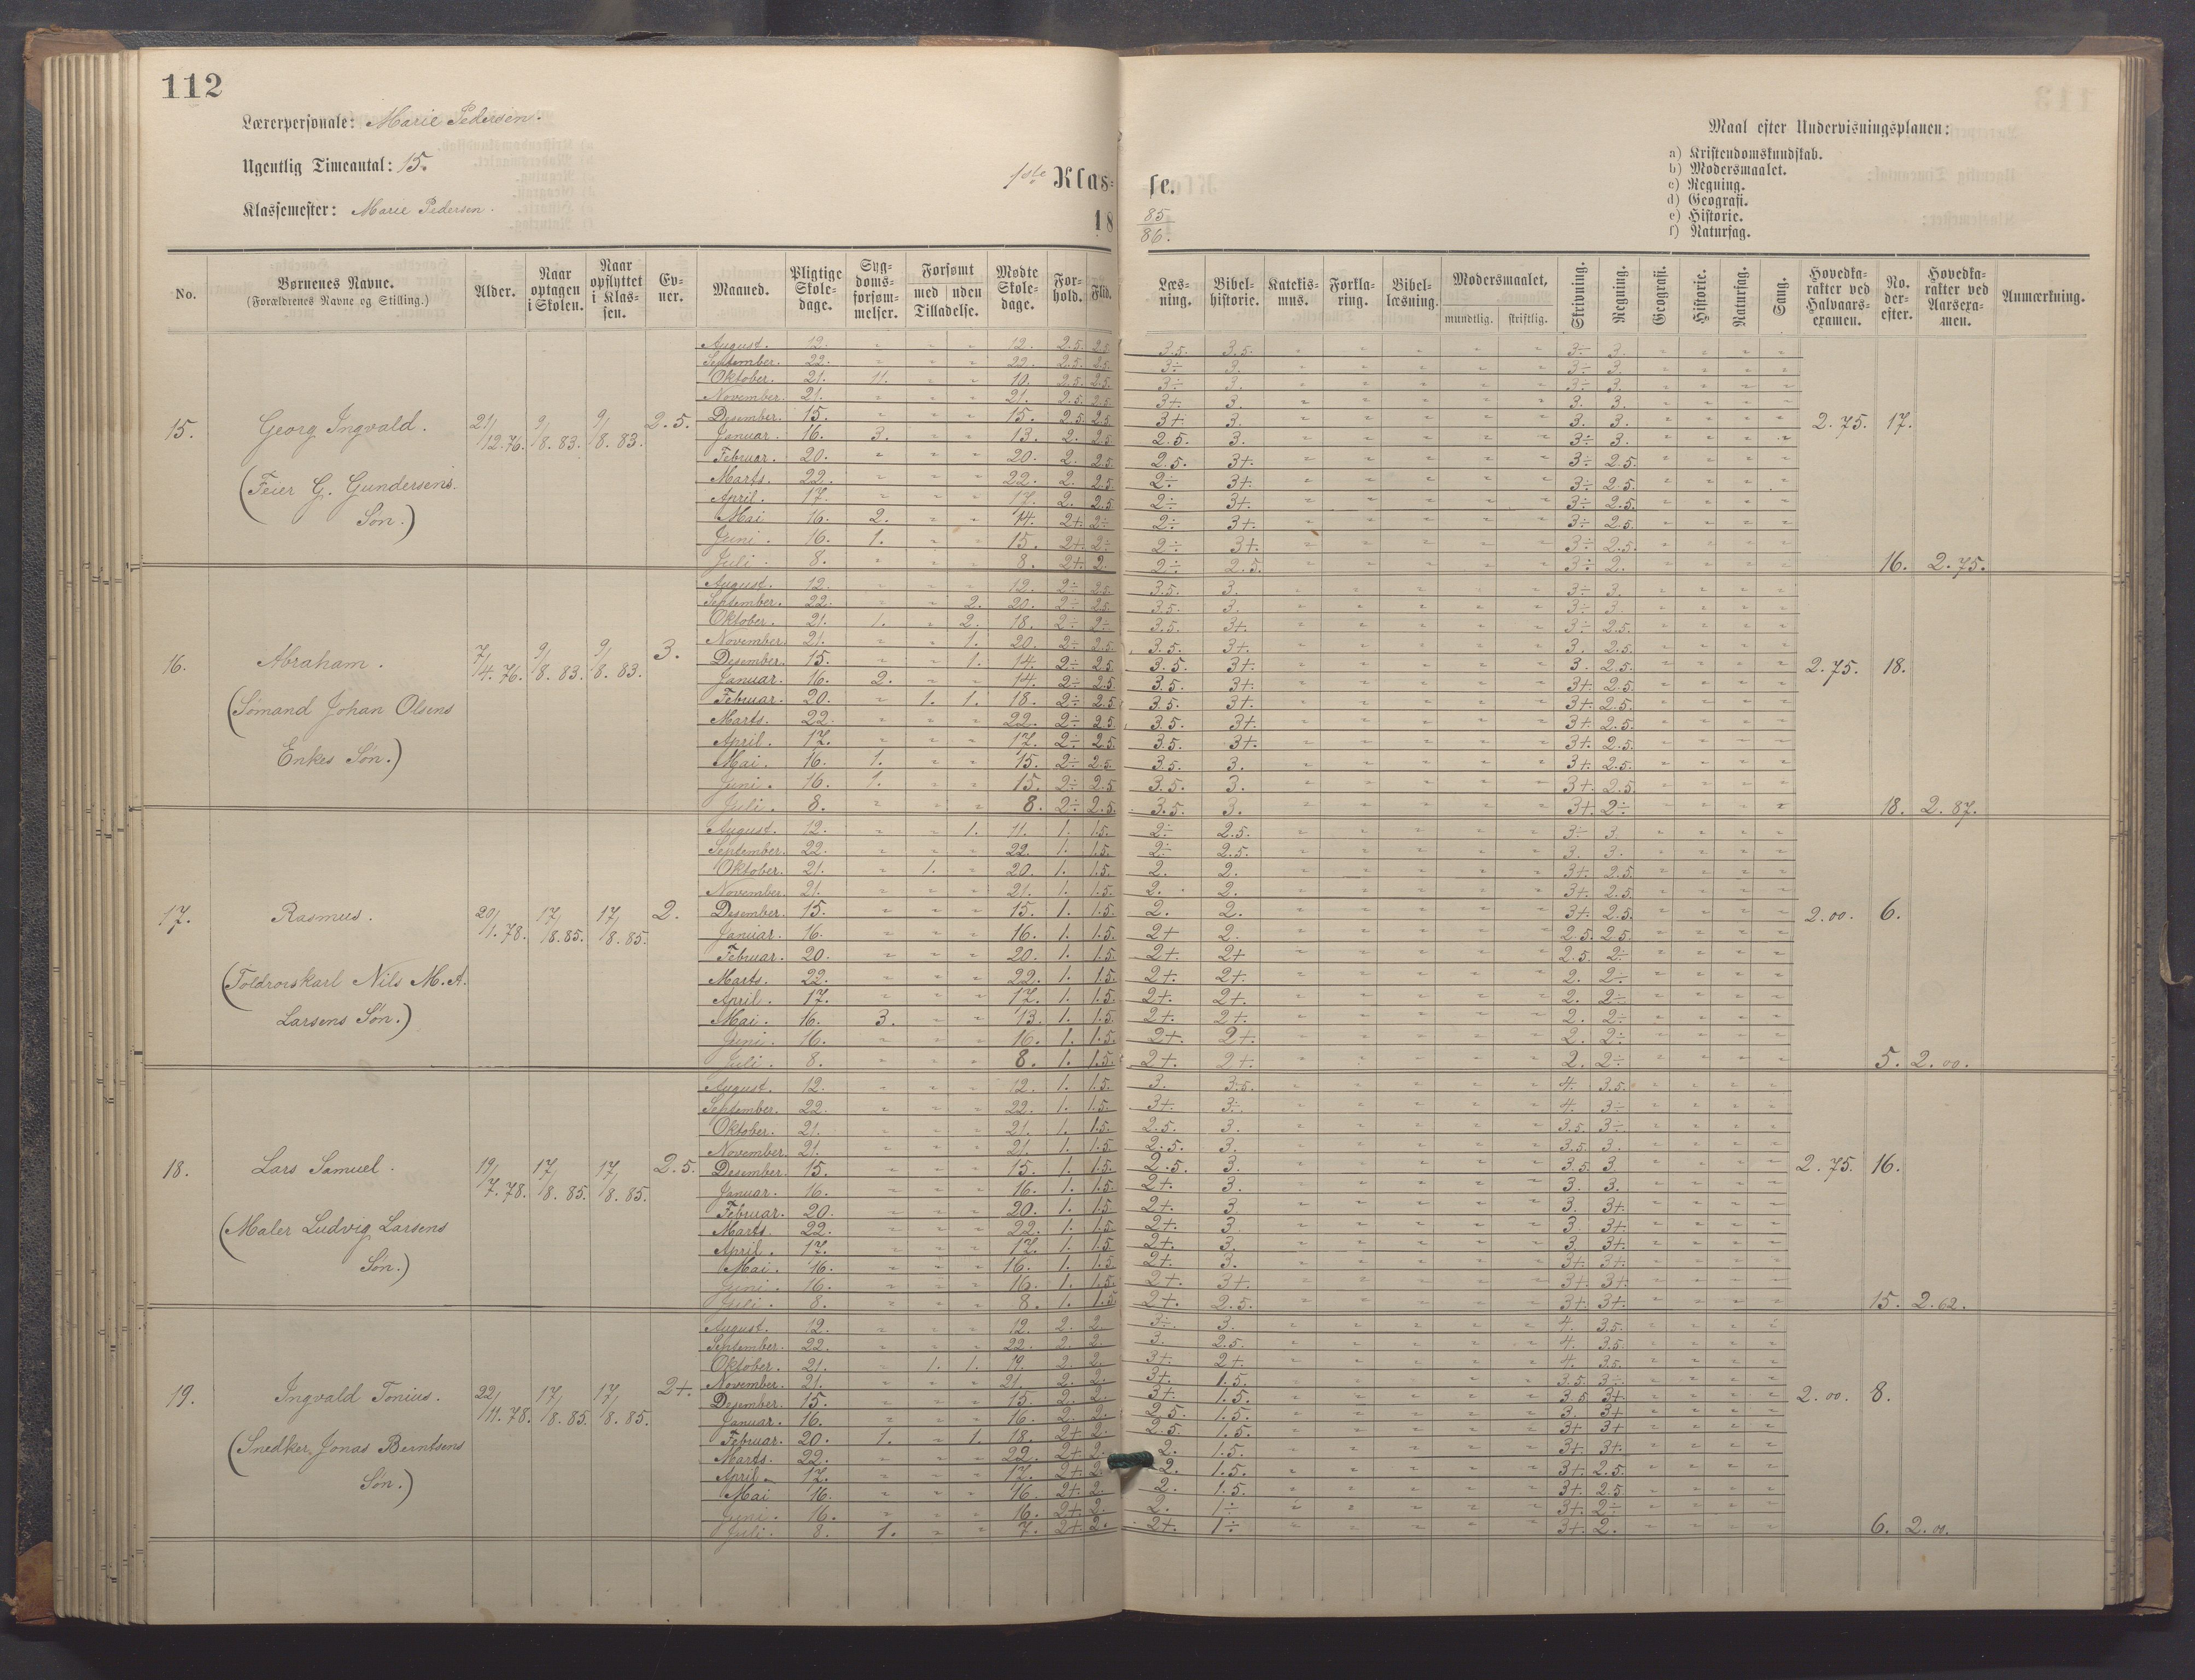 112
Lærerpersonale: Marie Pedersen.
Ugentlig Timeantal: 15.
Klassemester: Marie Pedersen.
1ste Klasse.
18 85/86.
Maal efter Undervisningsplanen:
a) Kristendomskundskab.
b) Modersmaalet.
c) Regning.
d) Geografi.
e) Historie.
f) Naturfag.
No. | Børnenes Navne. (Forældrenes Navne og Stilling.) | Alder. | Naar optagen i Skolen. | Naar opflyttet i Klassen. | Evner. | Maaned. | Pligtige Skoledage. | Sygdomsforsømmelser. | Forsømt med / uden Tilladelse. | Mødte Skoledage. | Forhold. | Flid. | Læsning. | Bibelhistorie. | Katekismus. | Forklaring. | Bibellæsning. | Modersmaalet, mundtlig. / skriftlig. | Skrivning. | Regning. | Geografi. | Historie. | Naturfag. | Sang. | Hovedkarakter ved Halvaarsexamen. | No. derefter. | Hovedkarakter ved Aarsexamen. | Anmærkning.
15. Georg Ingvald. (Feier G. Gundersens Søn.) 21/12.76. 9/8.83. 9/8.83. 2.5. 2.75. 17.
August. 12. " " " 12. 2.5. 2.5. 3.5. 3.5. 3÷ 3.
September. 22. " " " 22. 2.5. 2.5. 3÷ 3. 3÷ 3.
Oktober. 21. 11. " " 10. 2.5. 2.5. 3÷ 3. 3÷ 3.
November. 21. " " " 21. 2.5. 2.5. 3+. 3. 3. 3.
Desember. 15. " " " 15. 2.5. 2.5. 3+ 3. 3. 3.
Januar. 16. 3. " " 13. 2. 2.5 2.5. 3. 3÷ 3.
Februar. 20. " " " 20. 2. 2.5. 2.5. 3+. 3÷ 2.5.
Marts. 22. " " " 22. 2. 2.5. 2÷ 3+. 3÷ 2.5.
April. 17. " " " 17. 2. 2.5 2÷ 3+. 3÷ 2.5.
Mai 16. 2. " " 14. 2+ 2÷ 2÷ 3+. 3÷ 2.5.
Juni. 16. 1. " " 15. 2+. 2÷ 2÷ 3+. 3÷ 2.5.
Juli. 8. " " " 8. 2+. 2. 2÷ 2.5. 3÷ 2. 16. 2.75.
16. Abraham. (Sømand Johan Olsens Enkes Søn.) 7/4.76. 9/8.83. 9/8.83. 3. 2.75. 18.
August. 12. " " " 12. 2÷ 2.5 3.5. 3. 3÷ 3.
September. 22. " " 2. 20. 2÷ 2.5. 3.5. 3. 3÷ 3.
Oktober. 21. 1. " 2. 18. 2÷ 2÷ 3.5. 3+. 3÷ 2.5.
November. 21. " " 1. 20. 2÷ 2.5. 3.5. 3+. 3. 2.5.
Desember. 15. " " 1. 14. 2÷ 2.5 3.5. 3+. 3. 2.5.
Januar. 16. 2. " " 14. 2÷ 2.5. 3.5. 3+. 3+. 2.5.
Februar. 20. " 1. 1. 18. 2÷ 2.5 3.5. 3+. 3+. 2.5.
Marts. 22. " " " 22. 2÷ 2.5 3.5. 3+. 3+. 2.5.
April. 17. " " " 17. 2÷ 2.5. 3.5. 3+. 3+. 2.5.
Mai. 16. 1. " " 15. 2÷ 2.5. 3.5. 3. 3+. 2.5.
Juni. 16. 1. " " 15. 2÷ 2.5 3.5. 3. 3+. 2.5.
Juli. 8. " " " 8. 2÷ 2.5. 3.5. 3. 3+. 2÷ 18. 2.87.
17. Rasmus. (Toldrorskarl Nils M. A. Larsens Søn.) 20/1.78. 17/8.85. 17/8.85. 2. 2.00. 6.
August. 12. " " 1. 11. 1. 1.5. 2÷ 2.5. 3÷ 3.
September. 22. " " " 22. 1. 1.5. 2÷ 2.5. 3. 3.
Oktober. 21. " 1. " 20. 1. 1.5. 2. 2. 3+. 2.5.
November. 21. " " " 21. 1. 1.5. 2. 2. 3+. 2.5.
Desember. 15. " " " 15. 1. 1.5. 2. 2. 3+. 2.5.
Januar. 16. " " " 16. 1. 1.5. 2+ 2. 2.5. 2.5.
Februar. 20. " " " 20. 1. 1.5. 2+. 2+ 2.5. 2÷
Marts. 22. " " " 22. 1. 1.5. 2+. 2+. 2. 2÷
April. 17. " " " 17. 1. 1.5. 2+. 2+. 2. 2÷
Mai. 16. 3. " " 13. 1. 1.5. 2+. 2+. 2. 2÷
Juni. 16. " " " 16. 1. 1.5. 2+. 2+. 2. 2÷
Juli. 8. " " " 8. 1. 1.5. 2+. 2+. 2. 2÷ 5. 2.00.
18. Lars Samuel. (Maler Ludvig Larsens Søn.) 19/7.78. 17/8.85. 17/8.85. 2.5. 2.75. 16.
August. 12. " " " 12. 1. 1.5. 3. 3.5. 4. 3.5.
September. 22. " " " 22. 1. 1.5. 3+. 3÷ 4. 3÷
Oktober. 21. " " " 21. 1. 1.5. 2.5. 3. 3.5. 3÷
November. 21. " " " 21. 1. 1.5 2.5. 3. 3.5. 3.
Desember. 15. " " " 15. 1. 1.5. 2.5. 3. 3.5. 3.
Januar. 16. " " " 16. 1. 1.5. 2+. 3. 3. 3.
Februar. 20. " " " 20. 1. 1.5 2+. 3. 3. 3+.
Marts. 22. " " " 22. 1. 1.5. 2+. 3. 3. 3+.
April. 17. " " " 17. 1. 1.5. 2+. 3. 3. 3+.
Mai. 16. " " " 16. 1. 1.5. 2+. 3. 3+. 3+.
Juni. 16. " " " 16. 1. 1.5. 2+. 3+. 3+. 3+.
Juli. 8. " " " 8. 1. 1.5. 2+. 2.5. 3+. 3+. 15. 2.62.
19. Ingvald Tonius. (Snedker Jonas Berntsens Søn.) 22/11.78. 17/8.85. 17/8.85. 2+. 2.00. 8.
August. 12. " " " 12. 2. 2. 3÷ 3. 4. 3.5.
September. 22. " " " 22. 2. 2. 3. 2.5. 4. 3.5.
Oktober. 21. " 1. 1. 19. 2. 2. 3+. 2+. 4. 3.5.
November. 21. " " " 21. 2. 2. 3+. 1.5. 3.5. 3÷
Desember. 15. " " " 15. 2. 2. 3+. 1.5. 3.5. 3+
Januar. 16. " " " 16. 2. 2. 2.5. 1.5. 3. 3+
Februar. 20. 1. " 1. 18. 2+ 2. 2.5. 1.5. 3+. 3+
Marts. 22. " " " 22. 2+ 2. 2. 1.5. 3+. 3+.
April. 17. " " " 17. 2+. 2. 2. 1.5. 3+. 2.5.
Mai 16. " " " 16. 2+. 2. 2. 1.5. 3+. 2.5.
Juni. 16. " " " 16. 2+. 2. 2. 1÷ 3+. 2÷
Juli. 8. 1. " " 7. 2+. 2. 2+. 1÷ 3+. 2. 6.